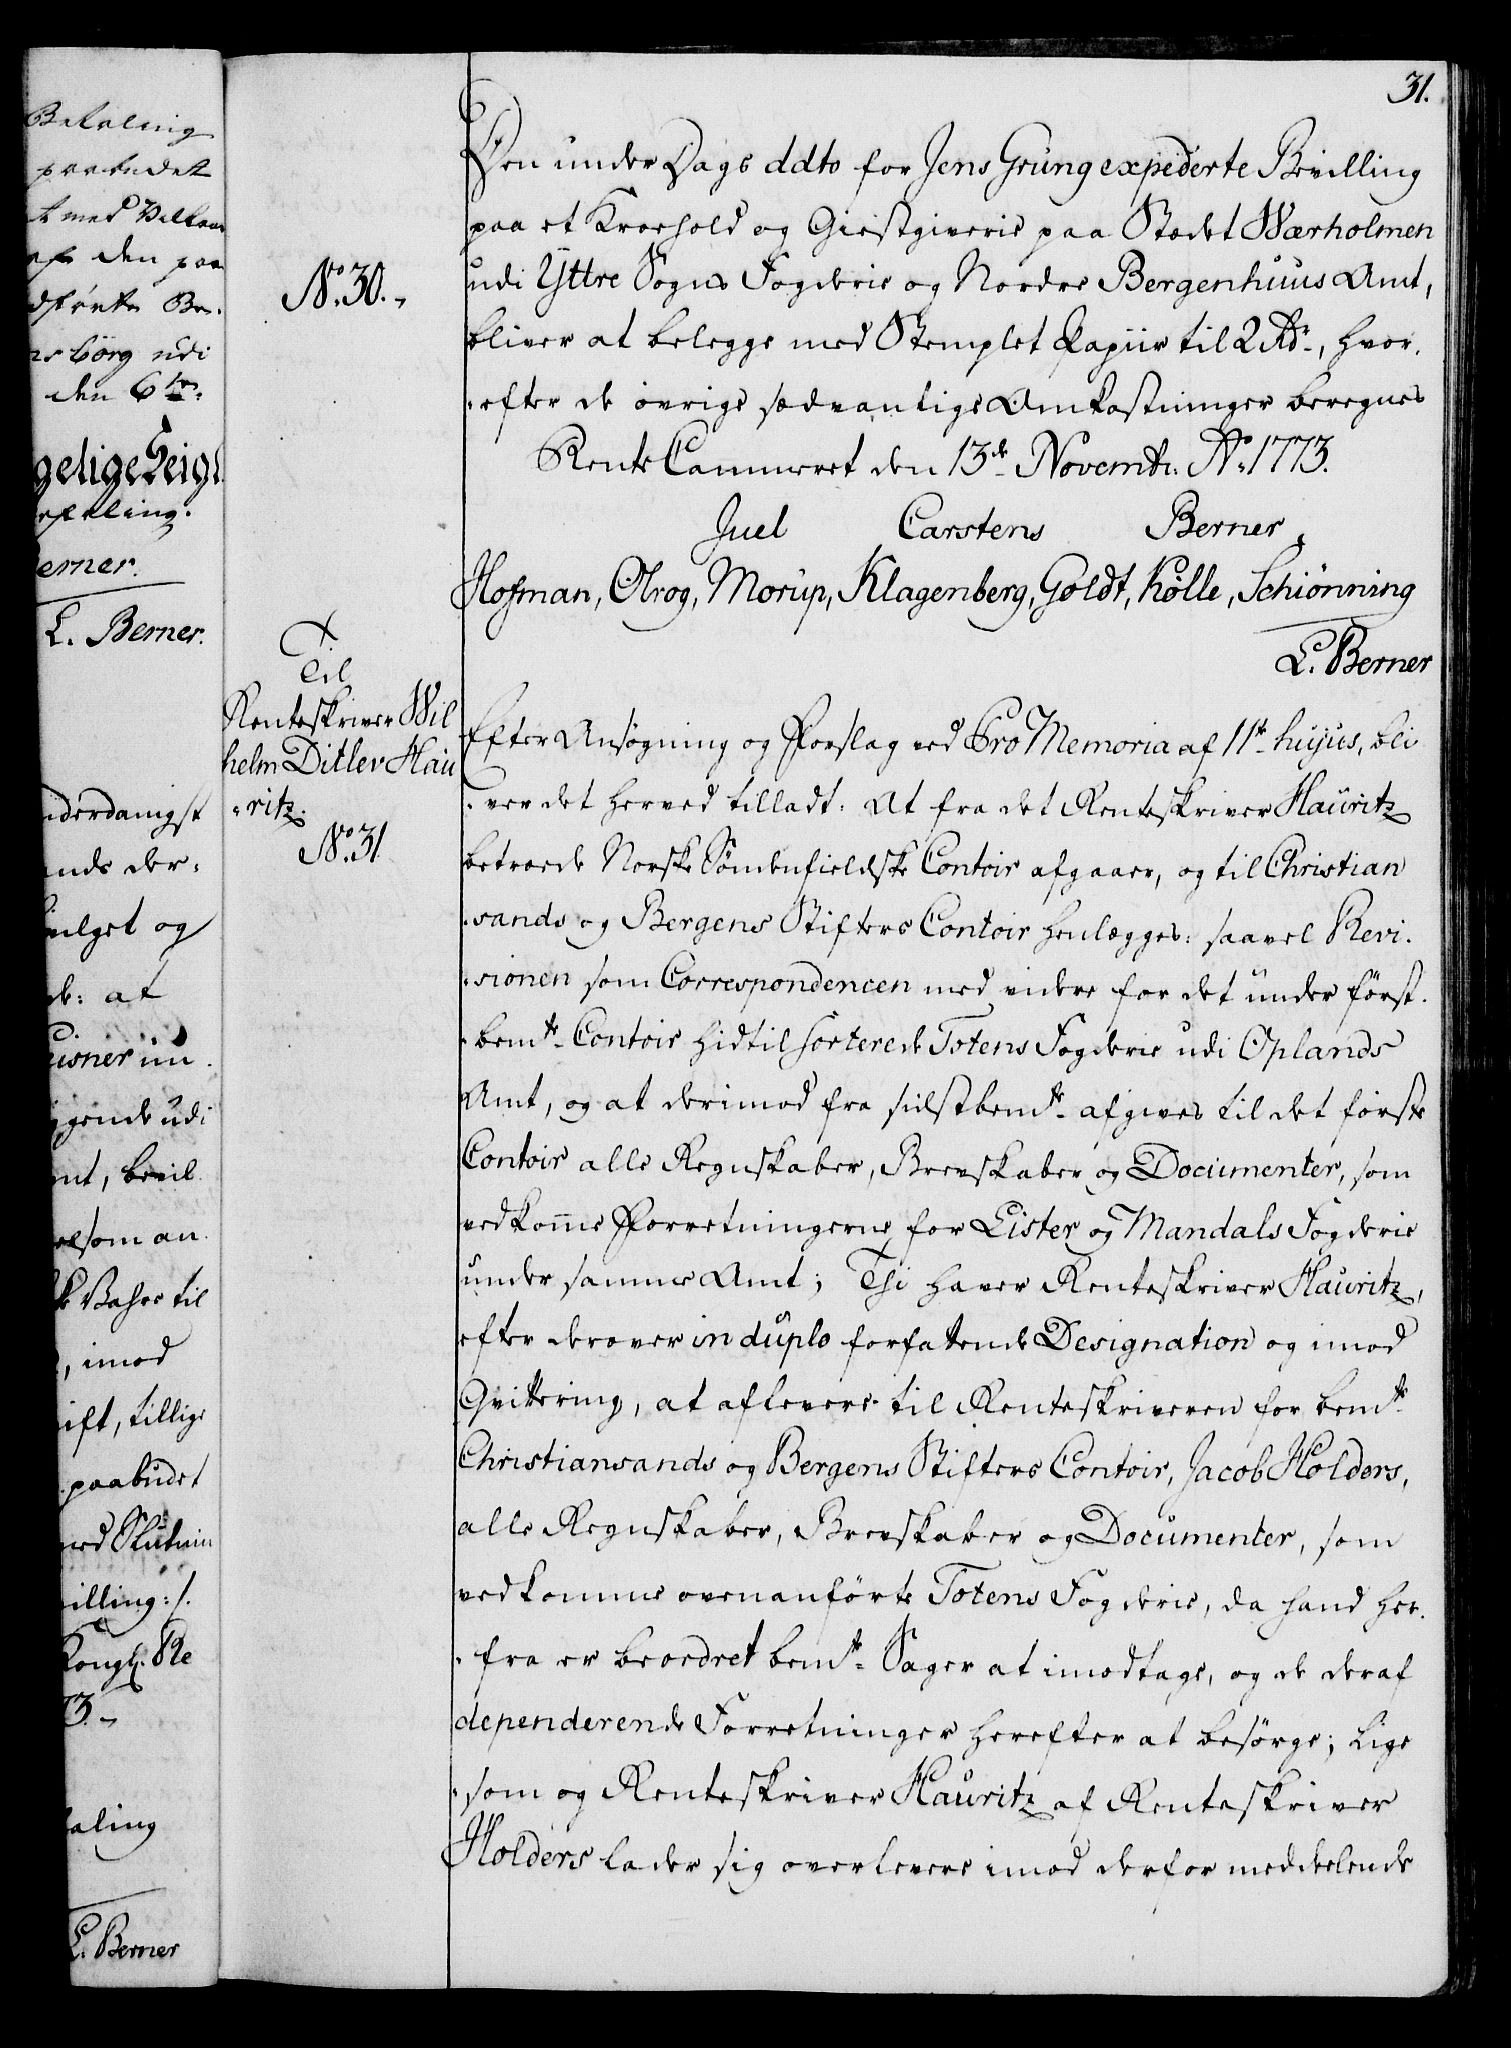 31.
Befaling
paabudet
t med Velbaar
af den paa
dförte Be-
nsborg udi
den 6te
gelige Leig
efaling.
Berner.
L. Berner.
nderdanigst
ands der-
vilget og
at
eisner in
gende udi
mt, bevil
som an
til
, imod
ift, tillige
paabudet
illing:/.
Kongl. Re
73.
aling
L. Berner
No. 30.
Den under Dags ddto for Jens Grung expederte Bevilling
paa et Kroehold og Giestgiverie paa Stædet Wærholmen
udi Yttre Sogns Fogderie og Nordre Bergenhuus Amt,
bliver at belegge med Stemplet Papiir til 2 Rdr, hvor-
-efter de övrige sædvanlige Omkostninger beregnes
Rente Cammeret den 13de Novembr. Ao. 1773.
Juel Carstens Berner
Hofman, Olrog, Morup, Klagenberg, Goldt, Kølle, Schiönning
L. Berner
Til
Renteskriver Wil
helm Ditlev Hau
-ritz.
No. 31
Efter Ansögning og Forslag ved Pro Memoria af 11te hujus, bli
-ver det herved tilladt: At fra det Renteskriver Hauritz
betroede Norske Söndenfieldske Contoir afgaaer, og til Christian
-sands og Bergens Stifters Contoir henlægges: saavel Revi-
-sionen som Correspondencen med videre for det under först-
-bemte Contoir hidtil sorterede Totens Fogderie udi Oplands
Amt, og at derimod fra sidstbemte afgives til det förste
Contoir alle Regnskaber, Brevskaber og Documenter, som
vedkomme Forretningerne for Lister og Mandals Fogderie
under samme Amt; Thi haver Renteskriver Hauritz,
efter derover in duplo forfattende Designation og imod
Qvittering, at aflevere til Renteskriveren for bemte
Christiansands og Bergens Stifters Contoir, Jacob Holders,
alle Regnskaber, Brevskaber og Documenter, som
vedkomme ovenanförte Totens Fogderie, da hand her-
-fra er beordret bemte Sager at imodtage, og de deraf
dependerende Forretninger herefter at besörge; Lige
-som og Renteskriver Hauritz af Renteskriver
Holders lader sig overlevere imod derfor meddelende